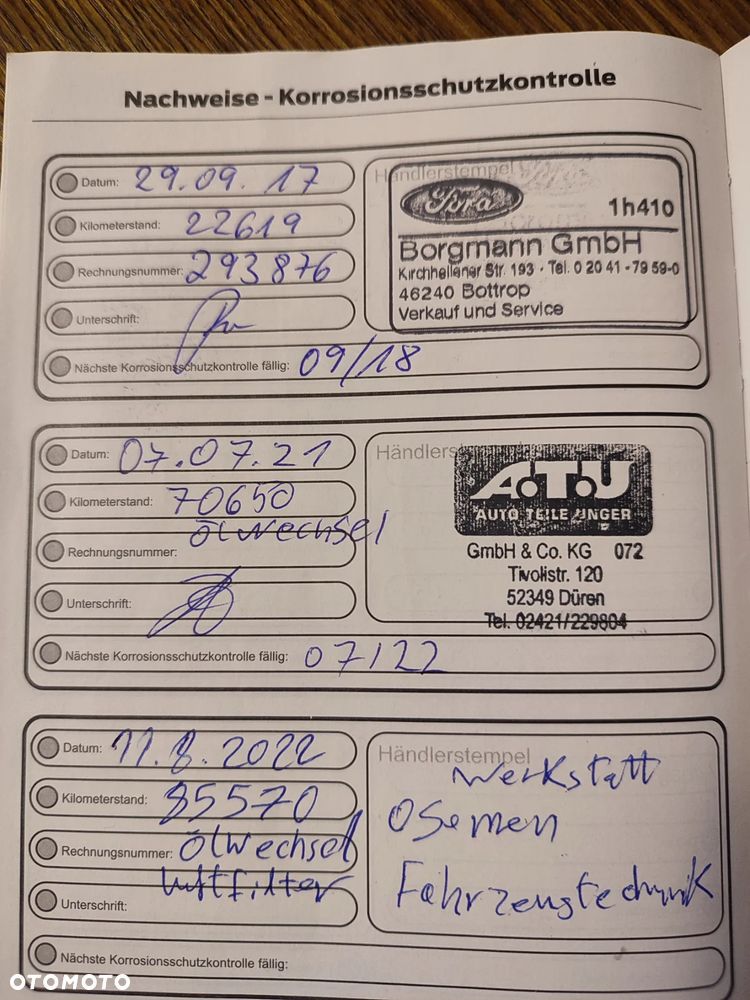 Nachweise - Korrosionsschutzkontrolle
Datum: 29.09.17
Kilometerstand: 22619
Rechnungsnummer: 293876
Unterschrift:
Nächste Korrosionsschutzkontrolle fällig: 09/18
Händlerstempel
Ford 1h410
Borgmann GmbH
Kirchhellener Str. 193 · Tel. 0 20 41 - 79 59-0
46240 Bottrop
Verkauf und Service
Datum: 07.07.21
Kilometerstand: 70650
Ölwechsel
Rechnungsnummer:
Unterschrift:
Nächste Korrosionsschutzkontrolle fällig: 07/22
A.T.U
AUTO TEILE UNGER
GmbH & Co. KG 072
Tivolistr. 120
52349 Düren
Tel. 02421/229804
Datum: 11.8.2022
Kilometerstand: 85570
Rechnungsnummer: Ölwechsel
Luftfilter
Unterschrift:
Nächste Korrosionsschutzkontrolle fällig:
Händlerstempel
Werkstatt
Osemen
Fahrzeugtechnik
OTOMOTO